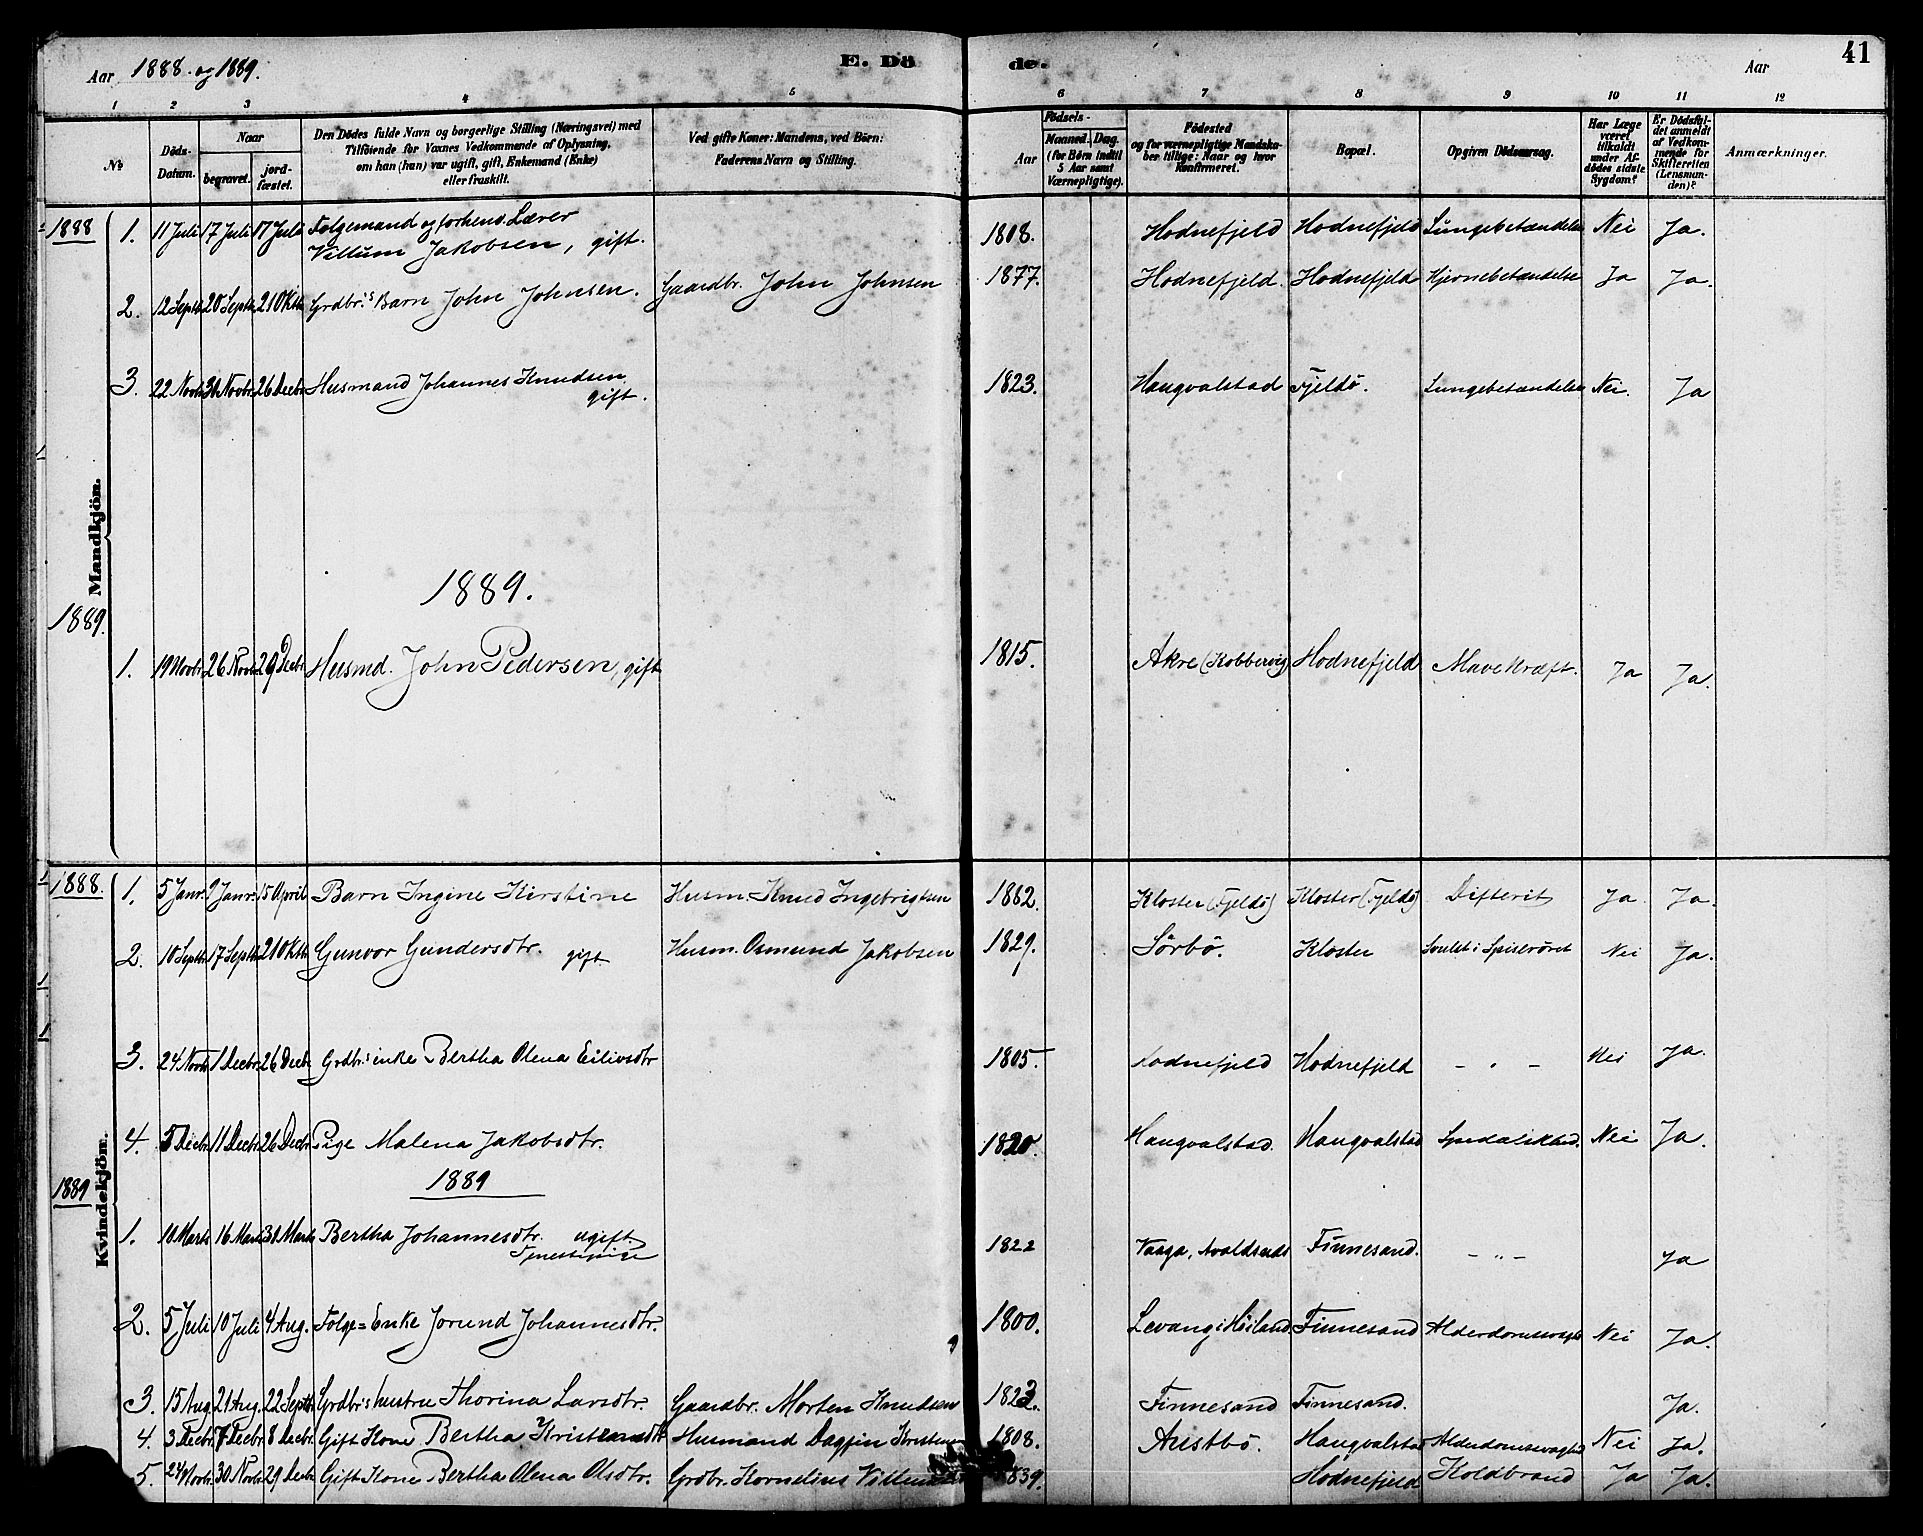 Aar 1888 og 1889. E. Döde. Aar 41
1 2 3 4 5 6 7 8 9 10 11 12
No
Döds-Datum.
Naar begravet. jordfæstet.
Den Dödes fulde Navn og borgerlige Stilling (Næringsvei) med
Tilföiende for Voxnes Vedkommende af Oplysning,
om han (hun) var ugift, gift, Enkemand (Enke)
eller fraskilt.
Ved gifte Koner: Mandens, ved Börn:
Faderens Navn og Stilling.
Födsels-
Aar Maaned. Dag.
(for Börn indtil 5 Aar samt Værnepligtige).
Födested
og for værnepligtige Mandskaber tillige: Naar og hvor Konfirmeret.
Bopæl.
Opgiven Dödsaarsag.
Har Læge været tilkaldt under Afdödes sidste Sygdom?
Er Dödsfaldet anmeldt af Vedkommende for Skifteretten (Lensmanden)?
Anmærkninger.
Mandkjön.
1888 1. 11 Juli 17 Juli 17 Juli Folgemand og forhenv. Lærer
Villum Jakobsen, gift. 1808. Hodnefjeld Hodnefjeld Lungebetændelse Nei Ja.
2. 12 Septb. 20 Septb. 21 Oktb. Grdbr.s Barn John Johnsen. Gaardbr. John Johnsen 1877. Hodnefjeld. Hodnefjeld Hjernebetændelse Ja Ja.
3. 22 Novbr. 30 Novbr. 26 Decbr. Husmand Johannes Knudsen
gift. 1823. Haugvalstad Fjeldö. Lungebetændelse Nei. Ja
1889.
1889.
1. 19 Novbr. 26 Novbr. 29 Decbr. Husmd. John Pedersen, gift 1815. Akre (Kobbervig) Hodnefjeld Mavekræft. Ja Ja.
Kvindekjön.
1888. 1. 5 Janr. 9 Janr. 15 April Barn Ingine Kirstine Husm. Knud Ingebrigtsen 1882. Kloster (Fjeldö) Kloster (Fjeldö) Difterit Ja Ja.
2. 10 Septb. 17 Septb. 21 Oktb. Gunvor Gundersdtr. gift Husm. Osmund Jakobsen 1829. Sörbö. Kloster Svulst i Spiseröret Nei Ja.
3. 24 Novbr. 1 Decbr. 26 Decbr. Grdbr.s enke Bertha Olena Eilivsdtr 1805. Hodnefjeld Hodnefjeld - " - Nei Ja.
4. 5 Decbr. 11 Decbr. 26 Decbr. Pige Malena Jakobsdtr. 1820. Haugvalstad. Haugvalstad Spedalskhed. Nei Ja.
1889
1889
1. 10 Marts 16 Marts 31 Marts Bertha Johannesdtr. ugift.
Tjenestepige 1822 Vaaga, Avaldsnes Finnesand. - " - Ja
2. 5 Juli 10 Juli 4 Aug. Folge-Enke Jorund Johannesdtr. 1800. Levang i Höiland Finnesand Alderdomssvaghed Nei Ja.
3. 15 Aug. 21 Aug. 22 Septb. Grdbr.s hustru Thorina Larsdtr. Gaardbr. Morten Knudsen 1823. Finnesand Finnesand. Ja.
4. 3 Decbr. 7 Decbr. 8 Decbr. Gift Kone Bertha Kristensdtr Husmand Dagfin Kristensen 1808. Austbö. Haugvalstad Alderdomssvaghed Nei Ja.
5. 24 Novbr. 30 Novbr. 29 Decbr. Gift Kone Bertha Olena Olsdtr. Grdbr. Kornelius Villumsen 1839. Hodnefjeld Koldbrand Ja Ja.